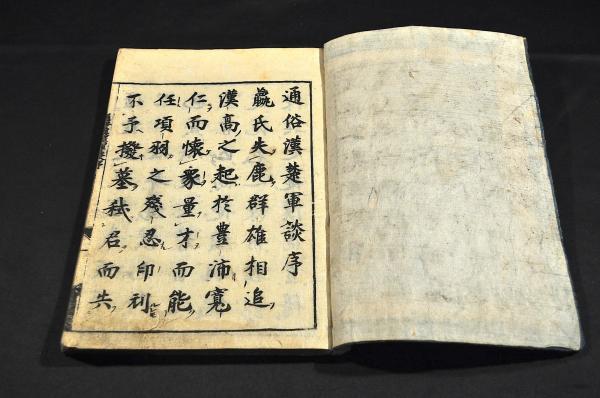 通俗漢楚軍談序
嬴氏失鹿群雄相追
漢高之起於豊沛寬
仁而懐衆量才而能
任項羽之殘忍印刓
不予撥墓弑君而失